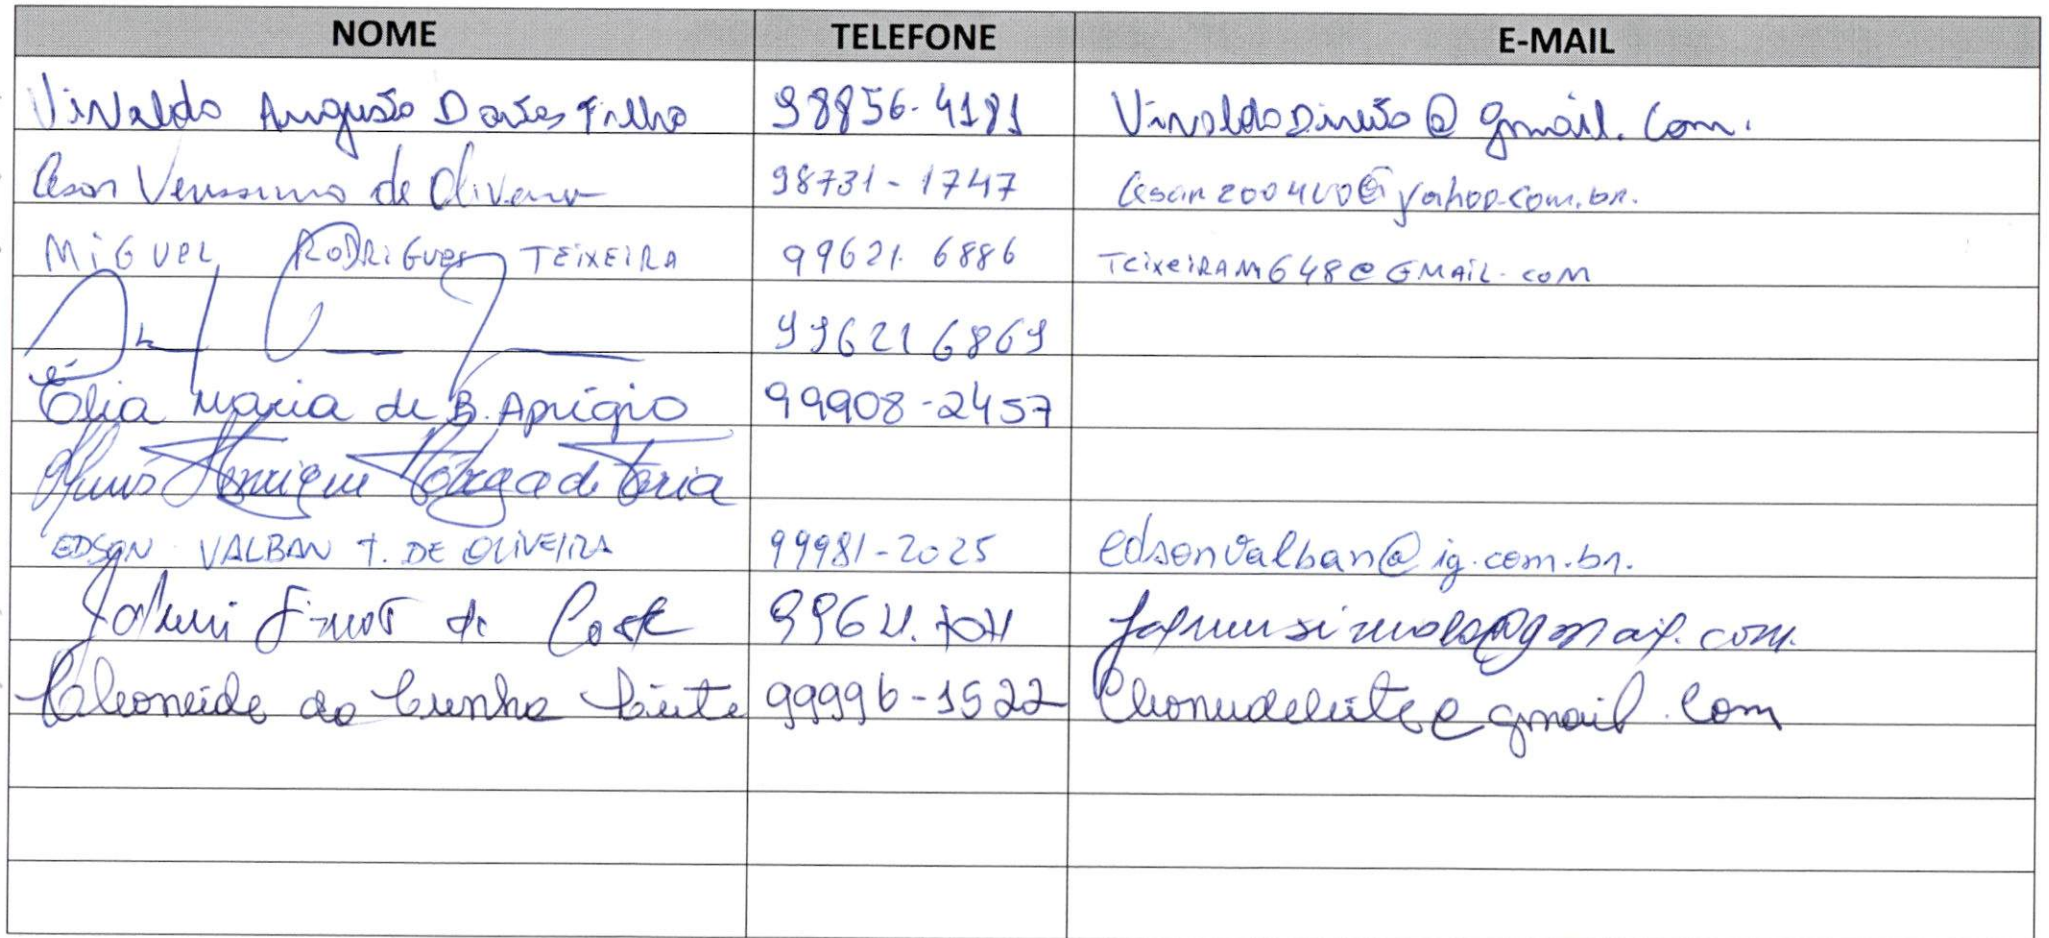 NOME TELEFONE E-MAIL
Vivaldo Augusto Dantas Filho 98856-4181 Vivaldodireito@gmail.com.
Cesar Verissimo de Oliveira 98731-1747 Cesar200400@yahoo.com.br.
MIGUEL RODRIGUES TEIXEIRA 99621.6886 TeixeiRAM648@GMAIL.COM
996216869
Élia Maria de B. Aprígio 99908-2457
Henrique Nóbrega de Faria
EDSON VALBAN T. DE OLIVEIRA 99981-2025 edsonvalban@ig.com.br.
da Costa
Cleoneide da Cunha Leite 99996-1522 Cleoneideleite@gmail.com